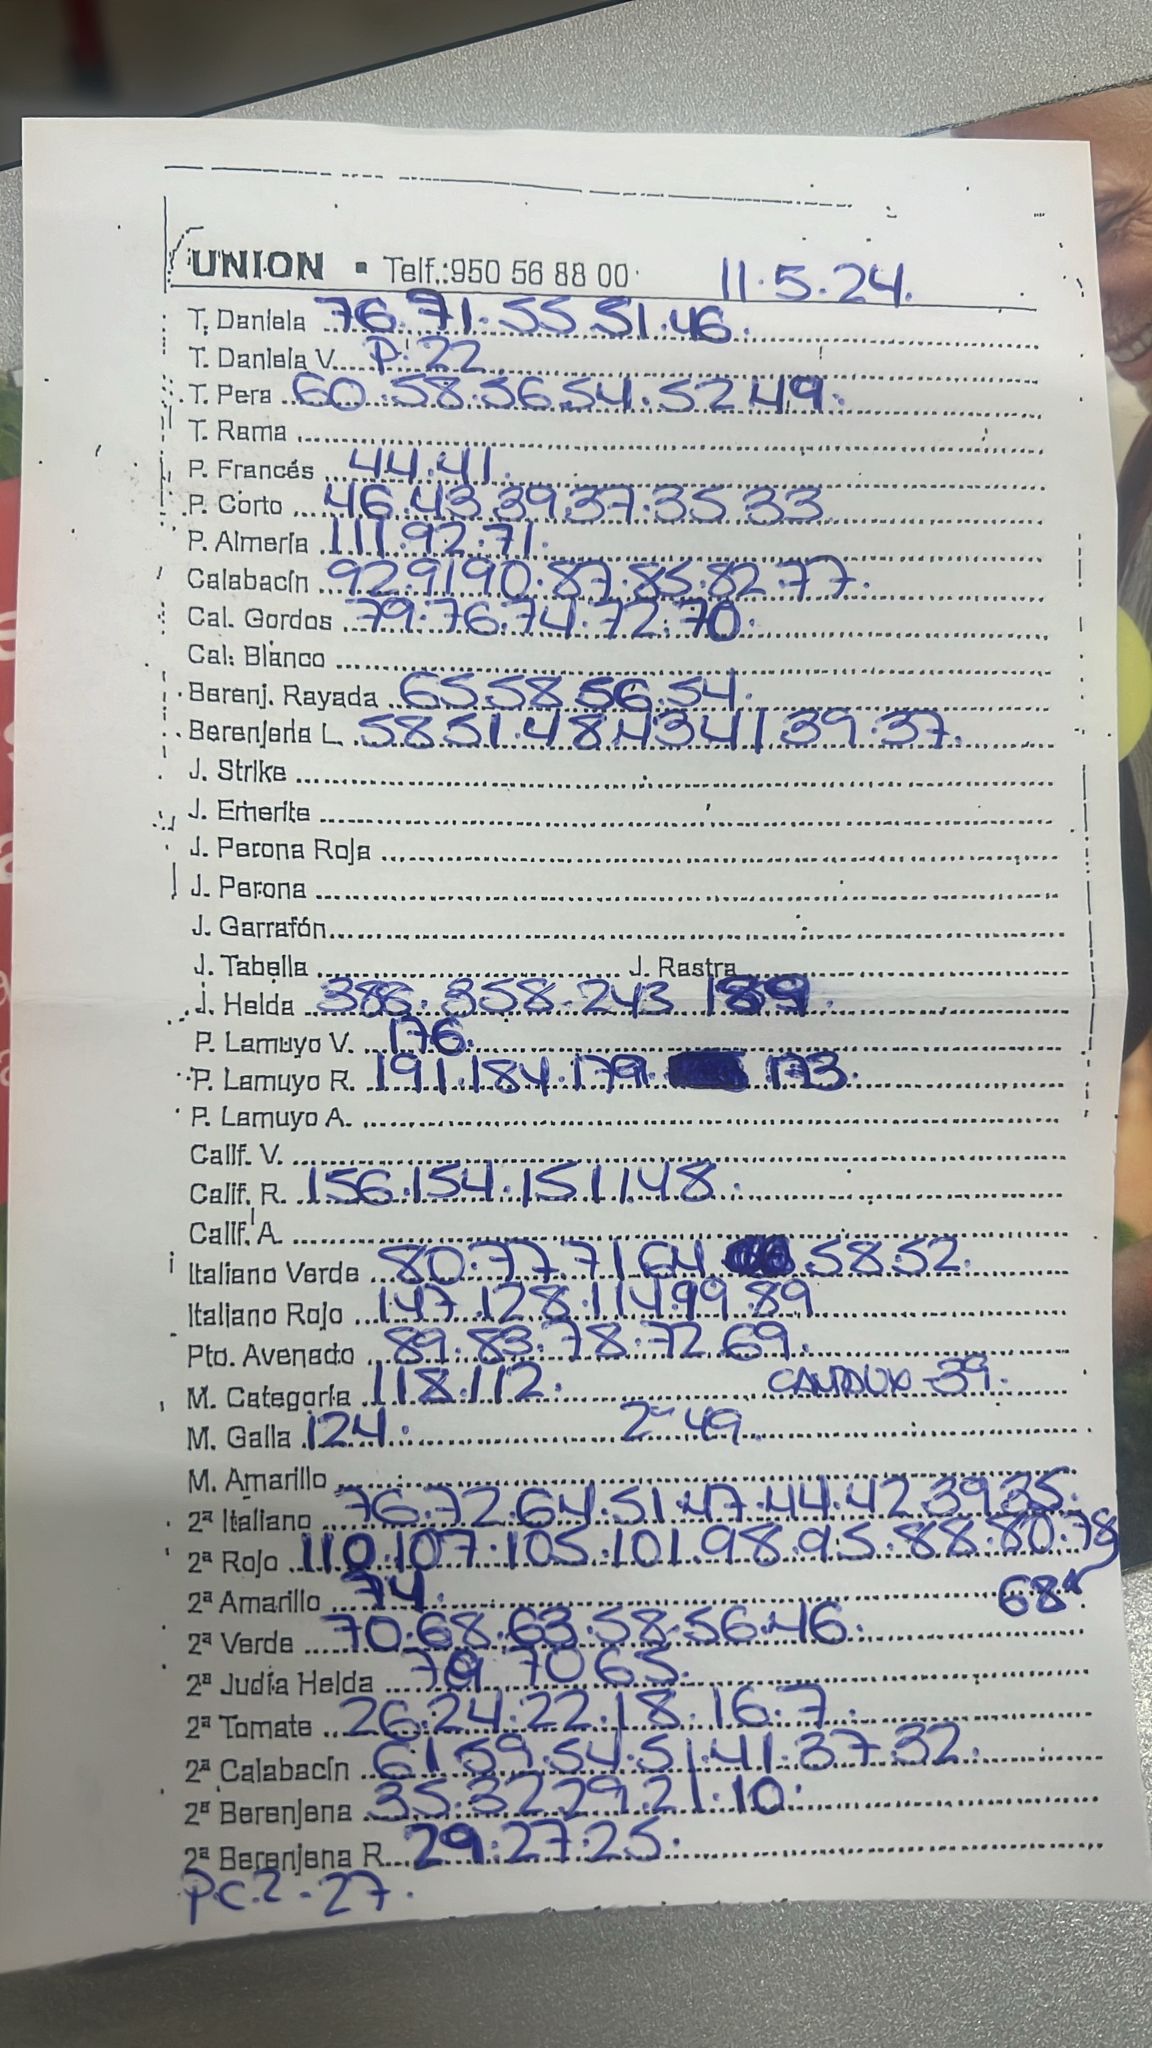 UNION ▪ Telf.:950 56 88 00 11.5.24.
T. Daniela 76.71.55.51.46.
T. Daniela V. P. 22
T. Pera 60.58.56.54.52.49.
T. Rama
P. Francés 44.41.
P. Corto 46.43.39.37.35.33
P. Almería 111.92.71.
Calabacín 92.91.90.87.85.82.77.
Cal. Gordos 79.76.74.72.70.
Cal. Blanco
Berenj. Rayada 65.58.56.54.
Berenjena L. 58.51.48.43.41.39.37.
J. Strike
J. Emerite
J. Perona Roja
J. Perona
J. Garrafón
J. Tabella J. Rastra
J. Helda 386.358.243 189.
P. Lamuyo V. 176.
P. Lamuyo R. 191.184.179. 173.
P. Lamuyo A.
Calif. V.
Calif. R. 156.154.151.148.
Calif. A.
Italiano Verde 80.77.71.64 58.52.
Italiano Rojo 147.128.114.99.89
Pto. Avenado 89.83.78.72.69.
M. Categoría 118.112. 39.
M. Galla 124. 2ª 49.
M. Amarillo
2ª Italiano 76.72.64.51.47.44.42.39.35.
2ª Rojo 110.107.105.101.98.95.88.80.78
2ª Amarillo 74. 68
2ª Verde 70.68.63.58.56.46.
2ª Judía Helda 70 65.
2ª Tomate 26.24.22.18.16.7.
2ª Calabacín 61.59.54.51.41.37.32.
2ª Berenjena 35.32.29.21.10.
2ª Berenjena R. 29.27.25.
PC.2-27.